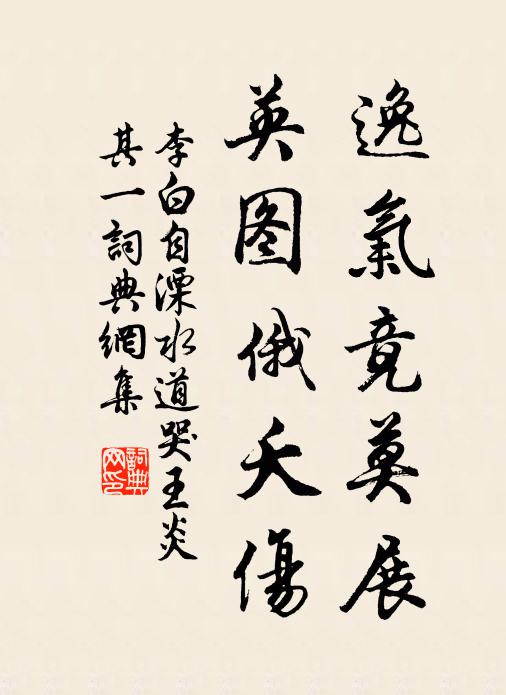 逸氣竟莫展
英图俄夭傷
李白自溧水道哭王炎
其一詞典網集
詞典
网印